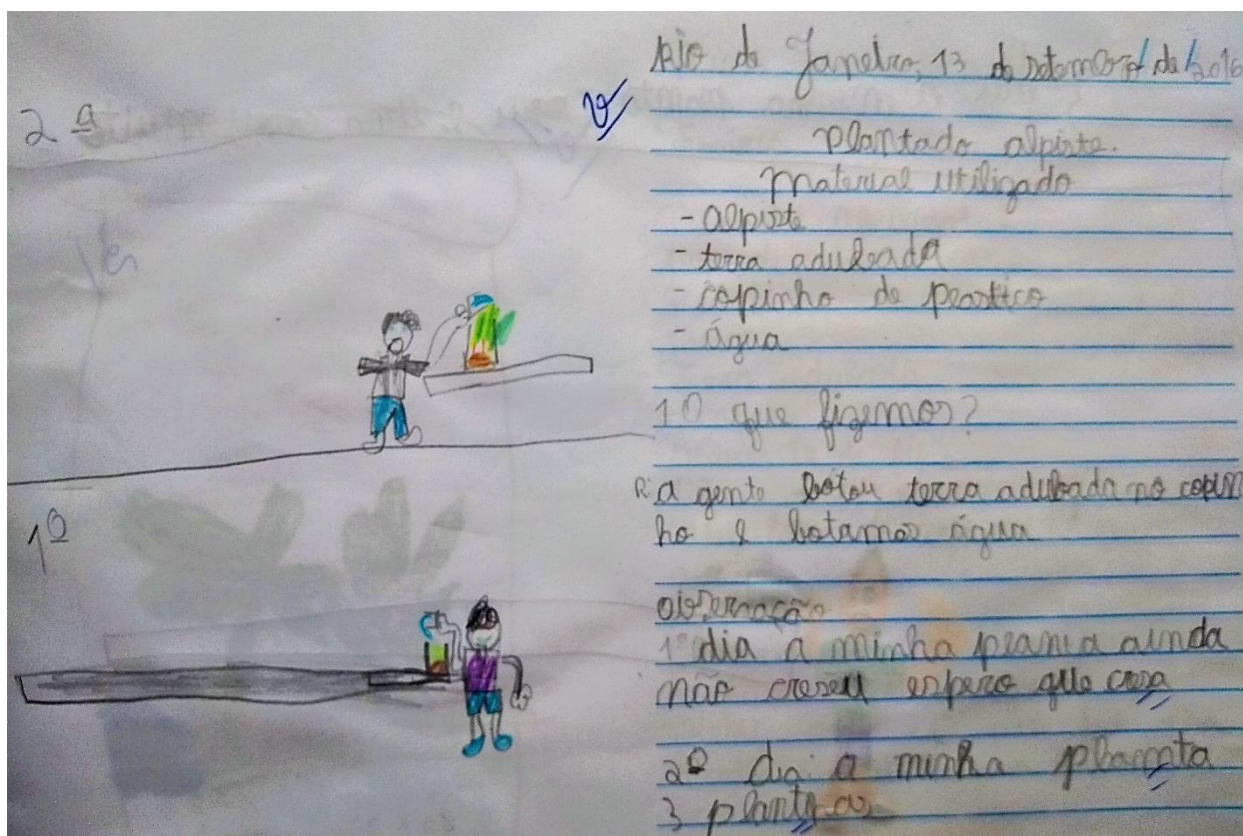 2ª
1º
Rio de Janeiro, 13 de setembro de 2016
Plantado alpiste.
Material utilizado
- alpiste
- terra adubada
- copinho de peastico
- água
1 O que fizemos?
R: a gente botou terra adubada no copin
ho e botamos água
observação
1º dia a minha pranta ainda
não creseu espero que cresa
2º dia: a minha plamta
3 planta